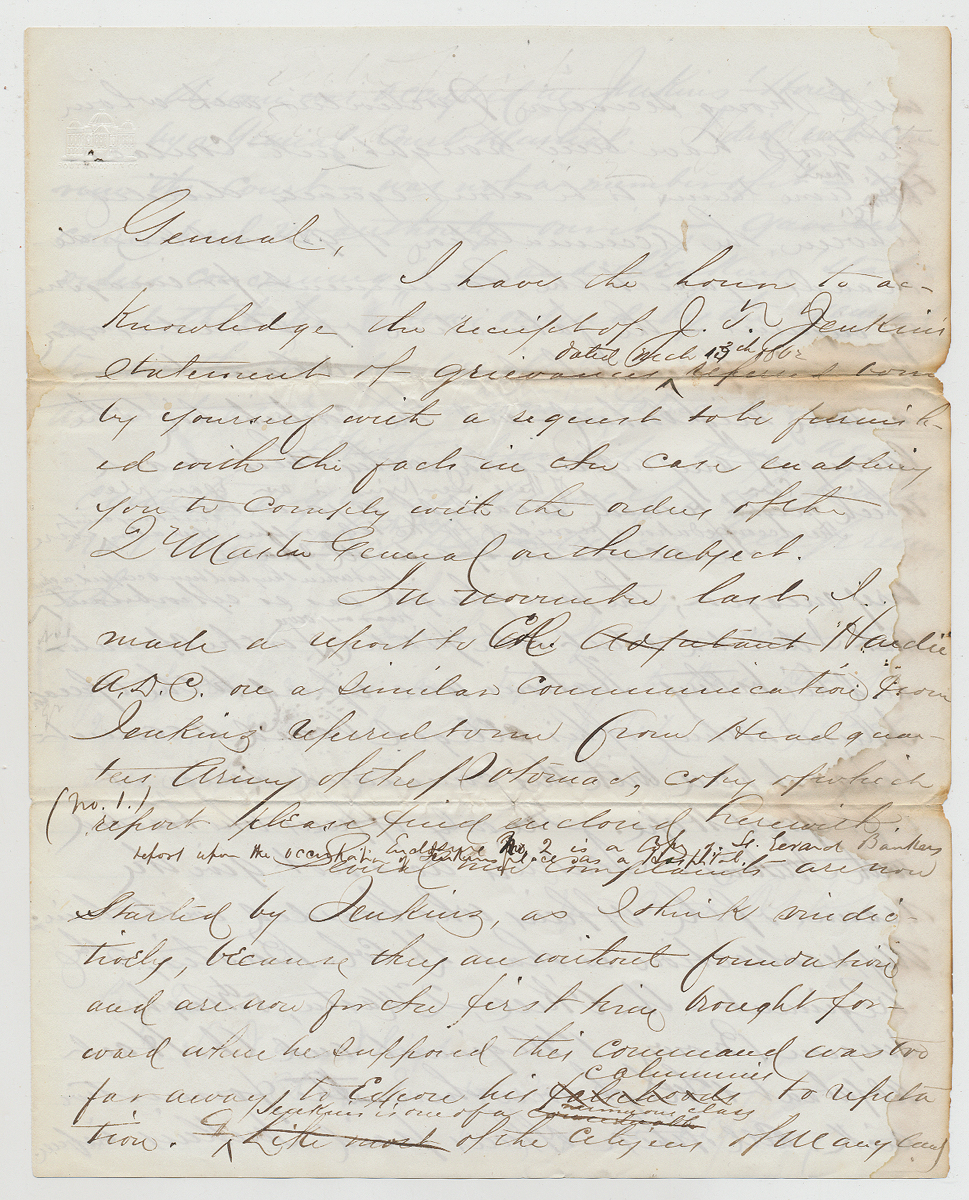 General,
I have the honor to ac-
knowledge the receipt of J. T. Jenkins
dated Mch 13th 1862
statement of grievances referred
by yourself with a request to be furnish-
ed with the facts in the case enabling
you to comply with the orders of the
Qr Master General on the subject.
In november, last, I
made a report to Col. Adjutant Hardie
A.D.C. on a similar communication from
Jenkins referred to me from Headquar-
ters Army of the Potomac, copy of which
(No. 1.)
report please find enclosed herewith
Enclosure No 2 is a
report upon the occupation of Jenkins place as a hospital.
Several new complaints are now
started by Jenkins, as I think vindic-
tively, because they are without foundation
and are now for the first time brought for-
ward when he supposed this command was too
calumnies
far away to Expose his falsehoods to refuta
Jenkins is one of a numerous class
tion. Like most of the Citizens of Maryland